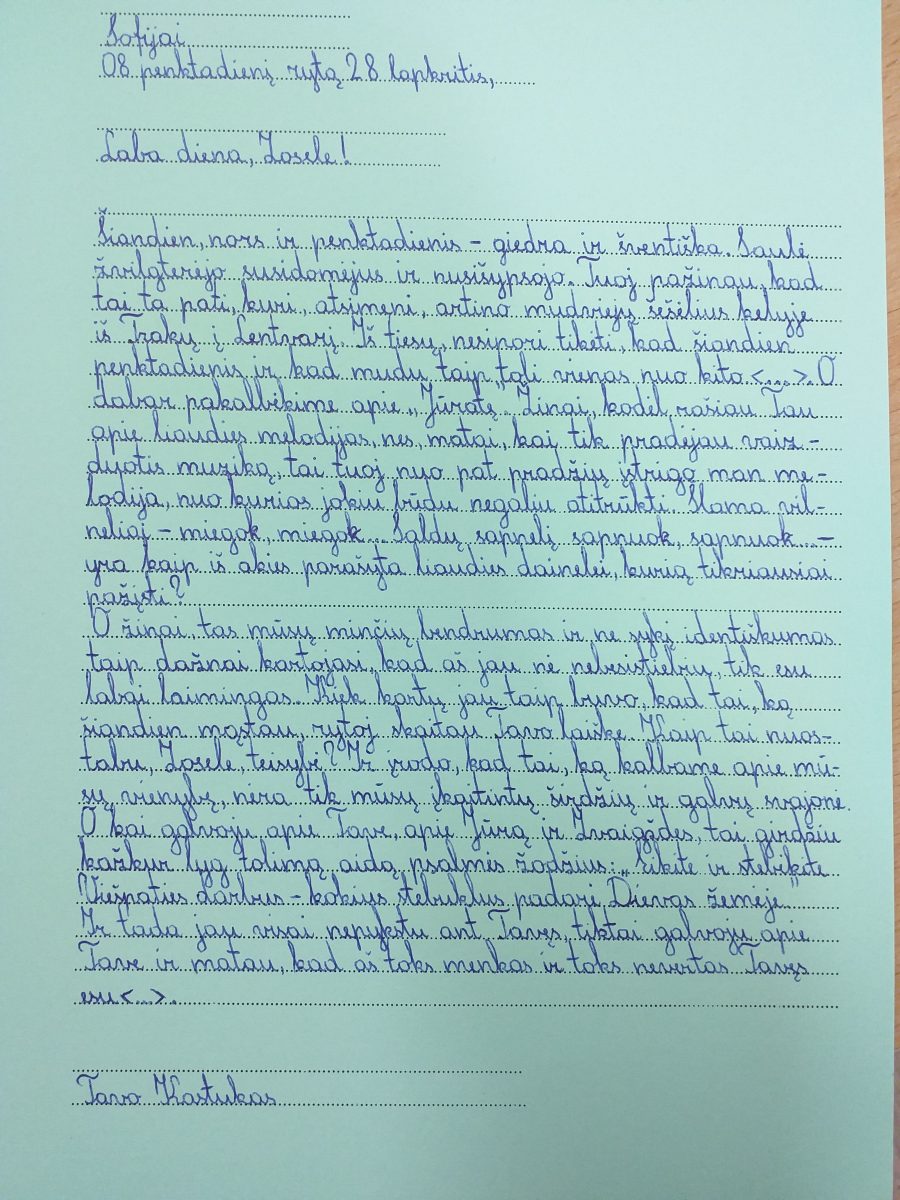 Sofijai
08 penktadienį rytą 28 lapkritis,
Laba diena, Zosele!
Šiandien, nors ir penktadienis – giedra ir šventiška. Saulė
žvilgterėjo susidomėjus ir nusišypsojo. Tuoj pažinau, kad
tai ta pati, kuri, atsimeni, artino mudviejų šešėlius kelyje
iš Trakų į Lentvarį. Iš tiesų, nesinori tikėti, kad šiandien
penktadienis ir kad mudu taip toli vienas nuo kito <...>. O
dabar pakalbėkime apie „Jūratę". Žinai, kodėl rašiau Tau
apie liaudies melodijas, nes, matai, kai tik pradėjau vaiz-
duotis muziką, tai tuoj nuo pat pradžių įstrigo man me-
lodija, nuo kurios jokiu būdu negaliu atitrūkti. Mama vil-
neliai – miegok, miegok... Saldų sapnelį sapnuok, sapnuok...–
yra kaip iš akies parašyta liaudies dainelei, kurią tikriausiai
pažįsti?
O žinai, tas mūsų minčių bendrumas ir ne sykį identiškumas
taip dažnai kartojasi, kad aš jau nė nebesistebiu, tik esu
labai laimingas. Kiek kartų jau taip buvo, kad tai, ką
šiandien mąstau, rytoj skaitau Tavo laiške. Kaip tai nuos-
tabu, Zosele, teisybė? Ir įrodo, kad tai, ką kalbame apie mū-
sų vienybę, nėra tik mūsų įkaitintų širdžių ir galvų svajonė.
O kai galvoju apie Tave, apie Jūrą ir Žvaigždes, tai girdžiu
kažkur lyg tolimą aidą psalmės žodžius: „Eikite ir stebėkite
Viešpaties darbus – kokius stebuklus padarė Dievas žemėje"
Ir tada jau visai nepykstu ant Tavęs, tiktai galvoju apie
Tave ir matau, kad aš toks menkas ir toks nevertas Tavęs
esu <...>.
Tavo Kastukas